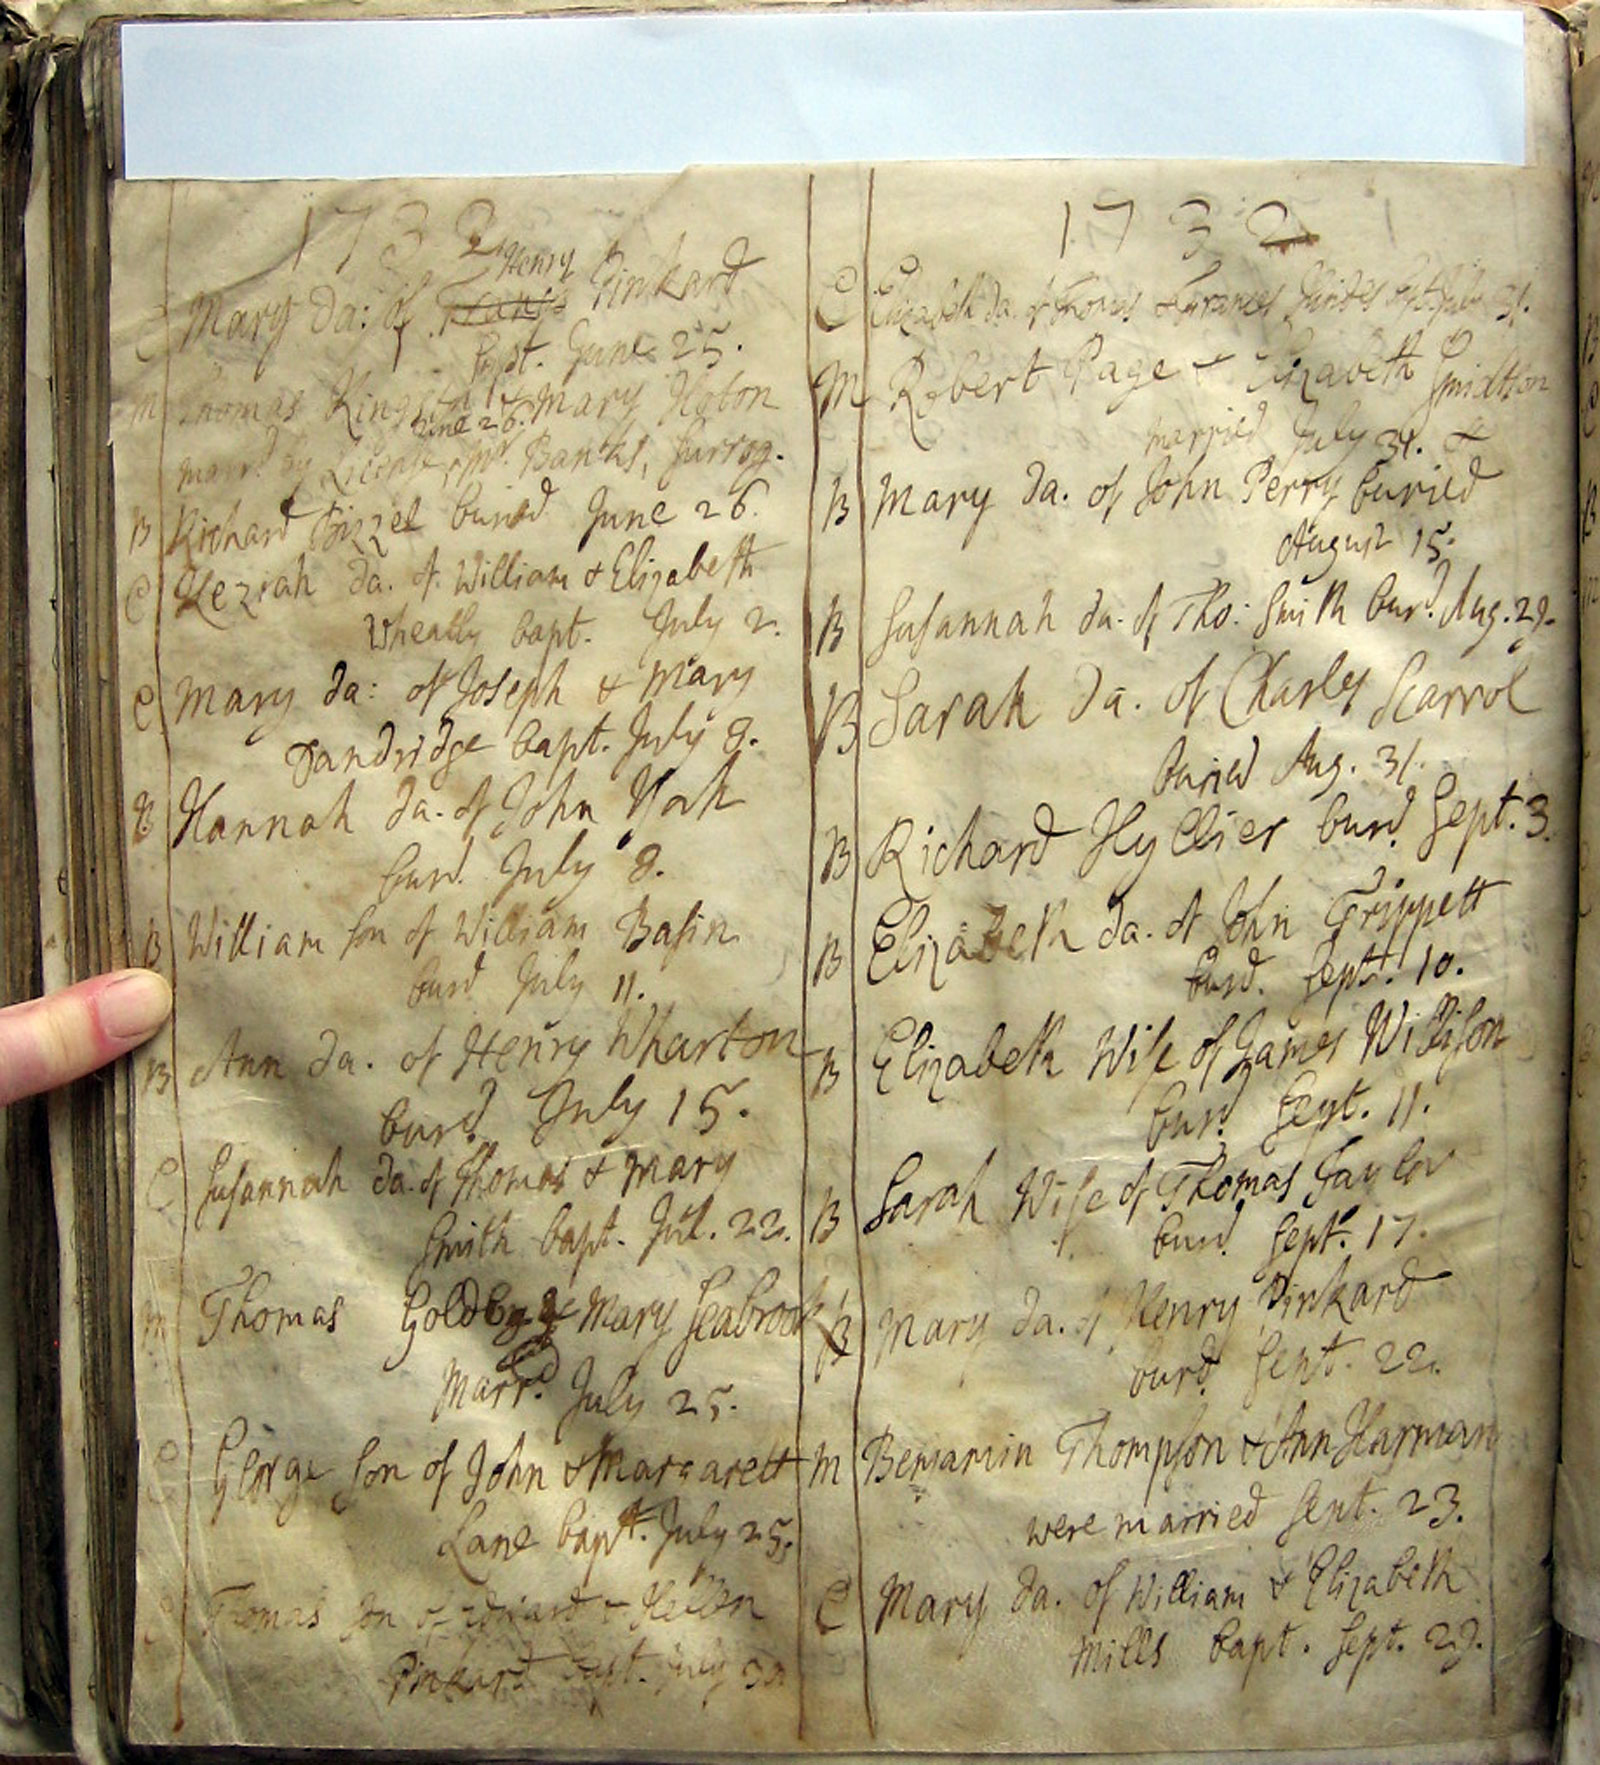 1732
Henry
C Mary da: of Francis Pinkard
bapt. June 25.
M Thomas Kings & Mary
June 26.
marr'd by License, Mr. Banks, Surrog.
B Richard Bizzel buried June 26.
C Keziah da. of William & Elizabeth
Wheatly bapt. July 2.
C Mary da: of Joseph & Mary
Dandridge bapt. July 8.
B Hannah da. of John York
burd. July 8.
B William son of William Basin
burd July 11.
B Ann da. of Henry Wharton
burd July 15.
C Susannah da. of Thomas & Mary
Smith bapt. Jul. 22.
M Thomas Goldby & Mary Seabrook
Marrd. July 25.
C George son of John & Margarett
Lane bapt. July 25.
C Thomas son of Edward & Hellen
Pinkard bapt. July 30
1732
C Elizabeth da. of Thomas & Frances bapt. July 31.
M Robert Page & Elizabeth
married July 31. &
B Mary da. of John Perry buried
August 15.
B Susannah da. of Tho: Smith burd. Aug. 29.
B Sarah da. of Charles Scarrol
buried Aug. 31.
B Richard Hyllier burd. Sept. 3.
B Elizabeth da. of John Trippett
burd. Sept. 10.
B Elizabeth Wife of James Willison
burd. Sept. 11.
B Sarah Wife of Thomas Taylor
burd. Sept. 17.
B Mary da. of Henry Pinkard
burd. Sept. 22.
M Benjamin Thompson & Ann Harman
were married Sept. 23.
C Mary da. of William & Elizabeth
Mills bapt. Sept. 29.